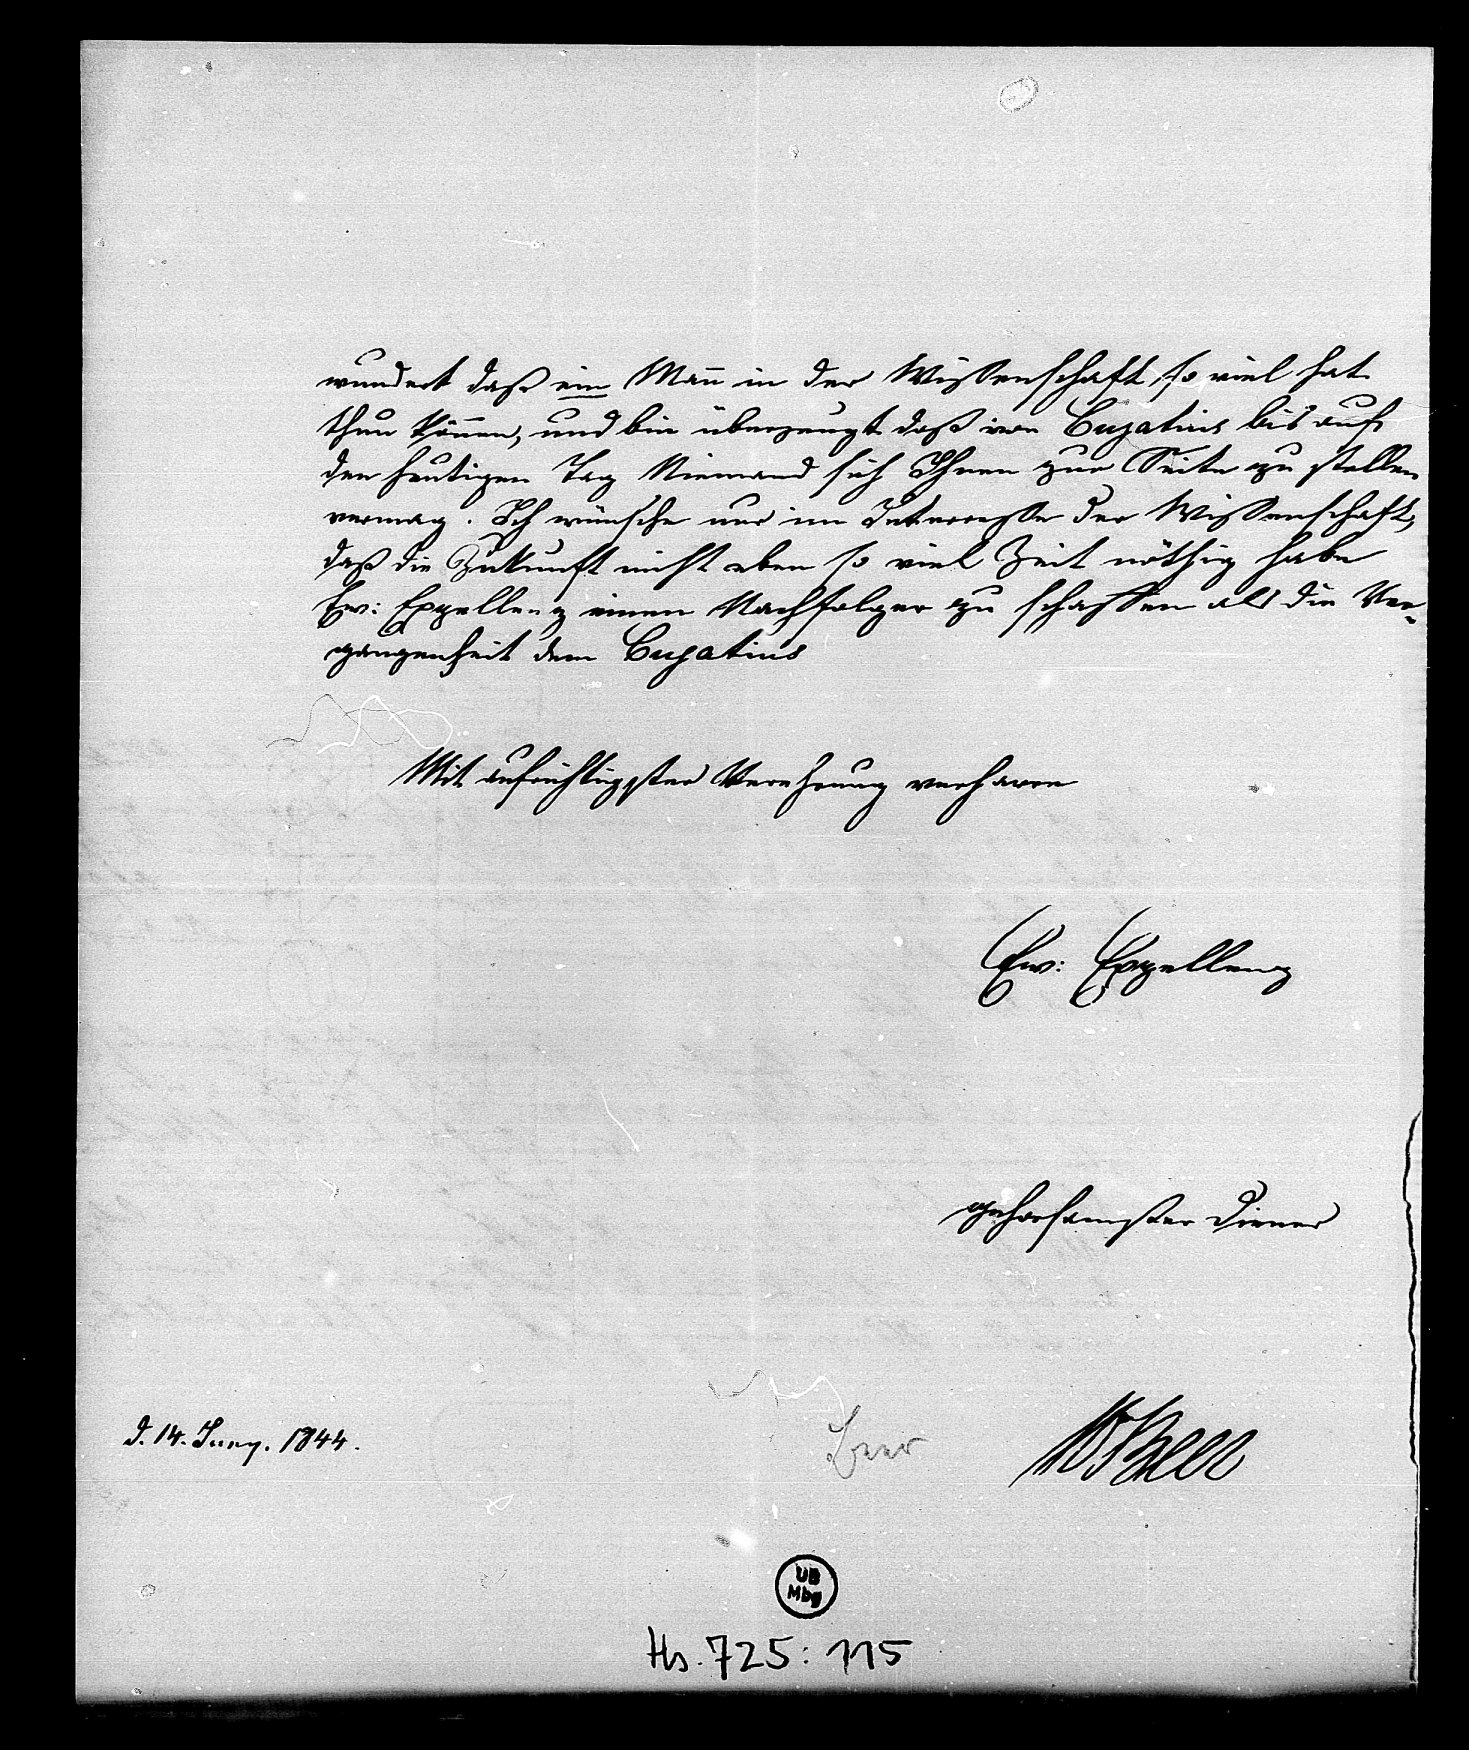 wundert daß ein Mañ in der Wissenschaft so viel hat
thun köñen, und bin überzeugt daß von Cujatius bis auf
den heutigen Tag Niemand sich Ihnen zur Seite zu stellen
vermag. Ich wünsche nur im Interresse der Wissenschaft,
daß die Zukunft nicht eben so viel Zeit nöthig habe
Ew: Exzellenz einen Nachfolger zu schaffen als die Ver-
gangenheit dem Cujatius
Mit aufrichtigster Verehrung verharre
Ew: Exzellenz
gehorsamster Diener
d. 14. Juny. 1844.
Beer
WBeer
UB
Mbg
Hs. 725: 115